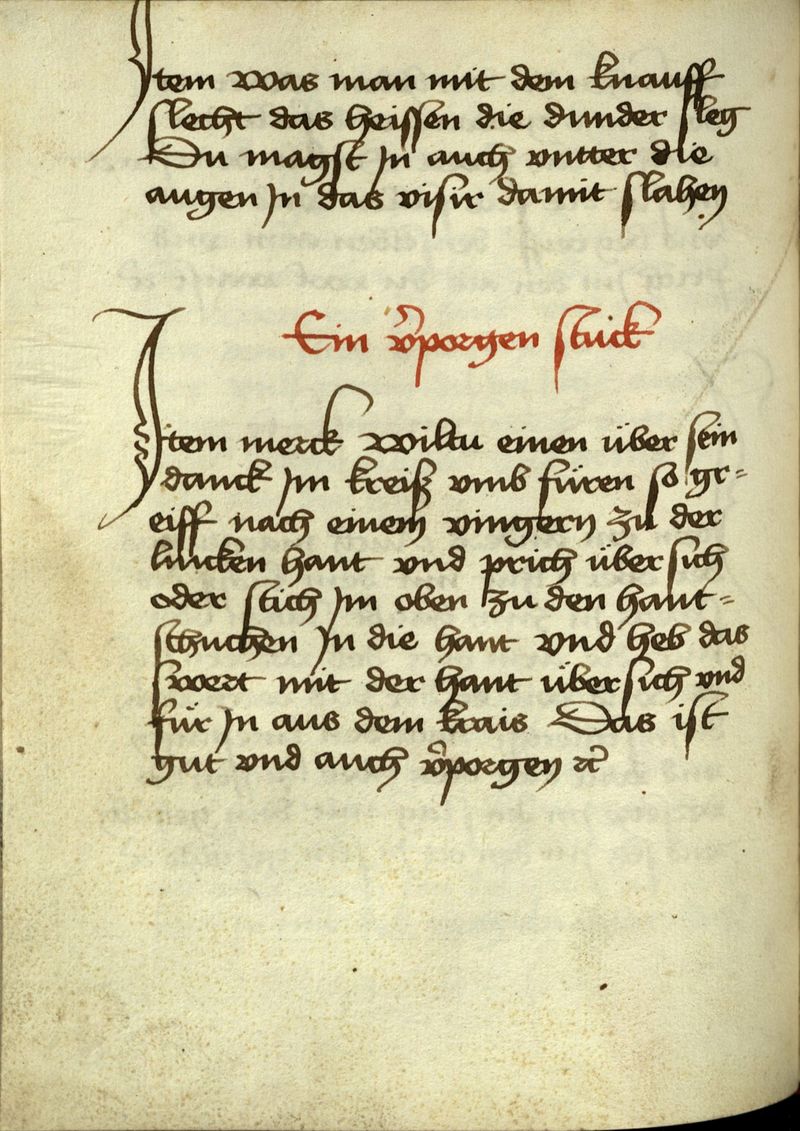 Item was man mit dem knauff
slecht das heissen die dunder sleg
Du magst jn auch vntter die
augen jn das visir damit slahen
Ein v̉porgen stuck
Item merck wiltu einen über sein
danck jm kreiß vmb füren so gr=
eiff nach einem vingern zu der
lincken hant vnd prich über sich
oder stich jm oben zu den hant=
schuchen jn die hant vnd heb das
swert mit der hant über sich vnd
für jn aus dem krais Das ist
gut vnd auch v̉porgen ꝛc̄